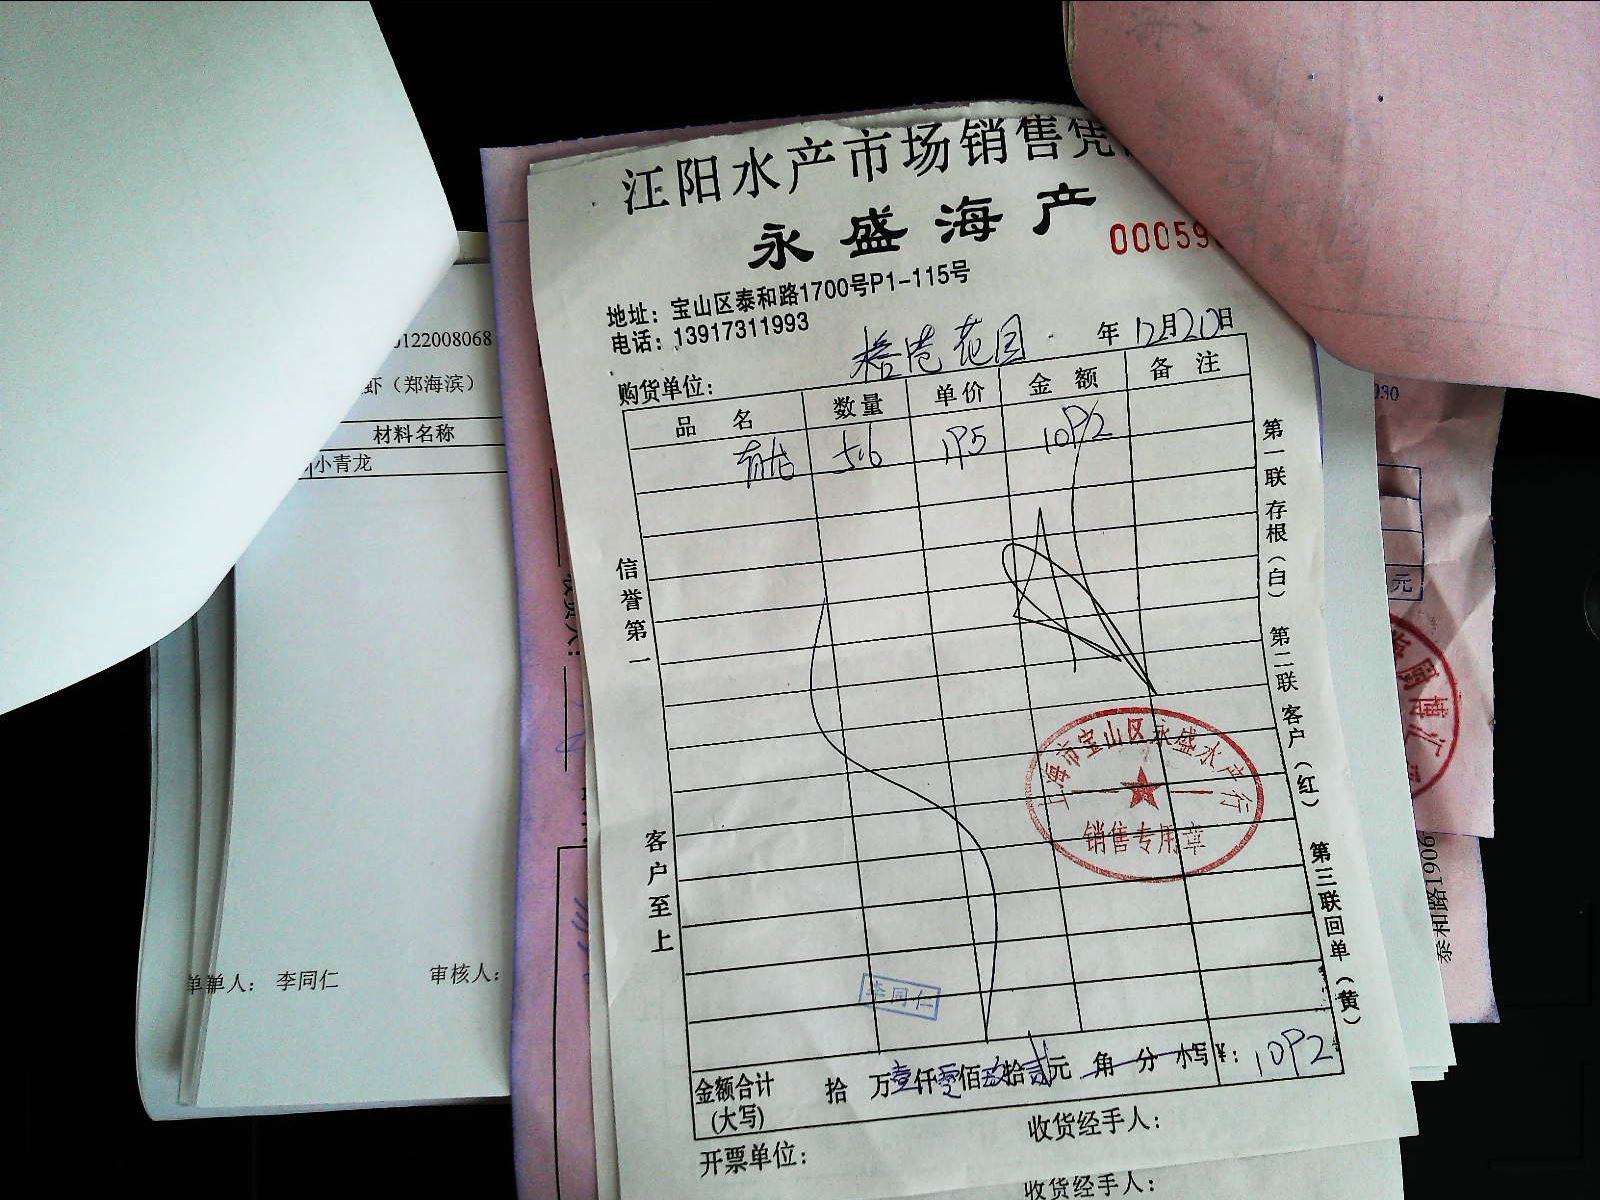 江阳水产市场销售凭
永盛海产
00059
地址：宝山区泰和路1700号P1-115号
电话：13917311993
年 12月20日
购货单位：
花园
品名 数量 单价 金额 备注
青龙 5.6 195 1092
信誉第一
客户至上
第一联 存根（白） 第二联 客户（红） 第三联 回单（黄）
上海市宝山区永盛水产行
销售专用章
李同仁
金额合计（大写） 拾 万壹仟零佰玖拾贰元 角 分 小写￥：1092
开票单位：
收货经手人：
收货经手人：
0122008068
虾（郑海滨）
材料名称
小青龙
单人： 李同仁 审核人：
元
泰和路1906